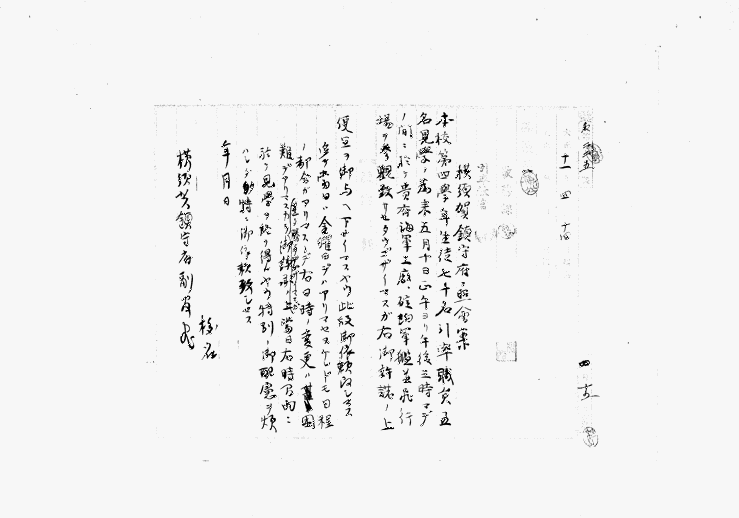 十一 四 十五
横須賀鎮守府ヘ照会案
本校第四学年生徒七十名引率職員五
名見学ノ為来五月十日正午ヨリ午後三時マデ
ノ間ニ於テ貴府海軍工廠、碇泊軍艦並飛行
場ヲ参観致サセタウゴザイマスガ右御許諾ノ上
便宜ヲ御与ヘ下サイマスヤウ此段御依頼致シマス
追テ当日ハ金曜日デハアリマセヌケレドモ日程
ノ都合ガアリマスノデ右日時ノ変更ハ困
難デアリマスカラ御諒承ノ上当日右時間内ニ
於テ見学ヲ終リ得ルヤウ特別ノ御配慮ヲ煩
ハシ度特ニ御依頼致シマス
年 月 日
校名
横須賀鎮守府副官宛